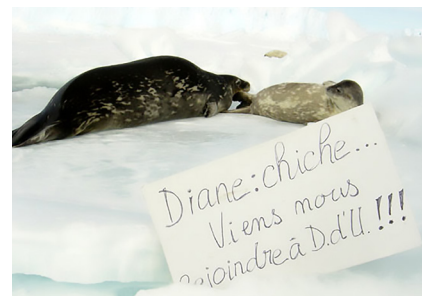 Diane: chiche...
Viens nous
Rejoindre à D.d'U. !!!